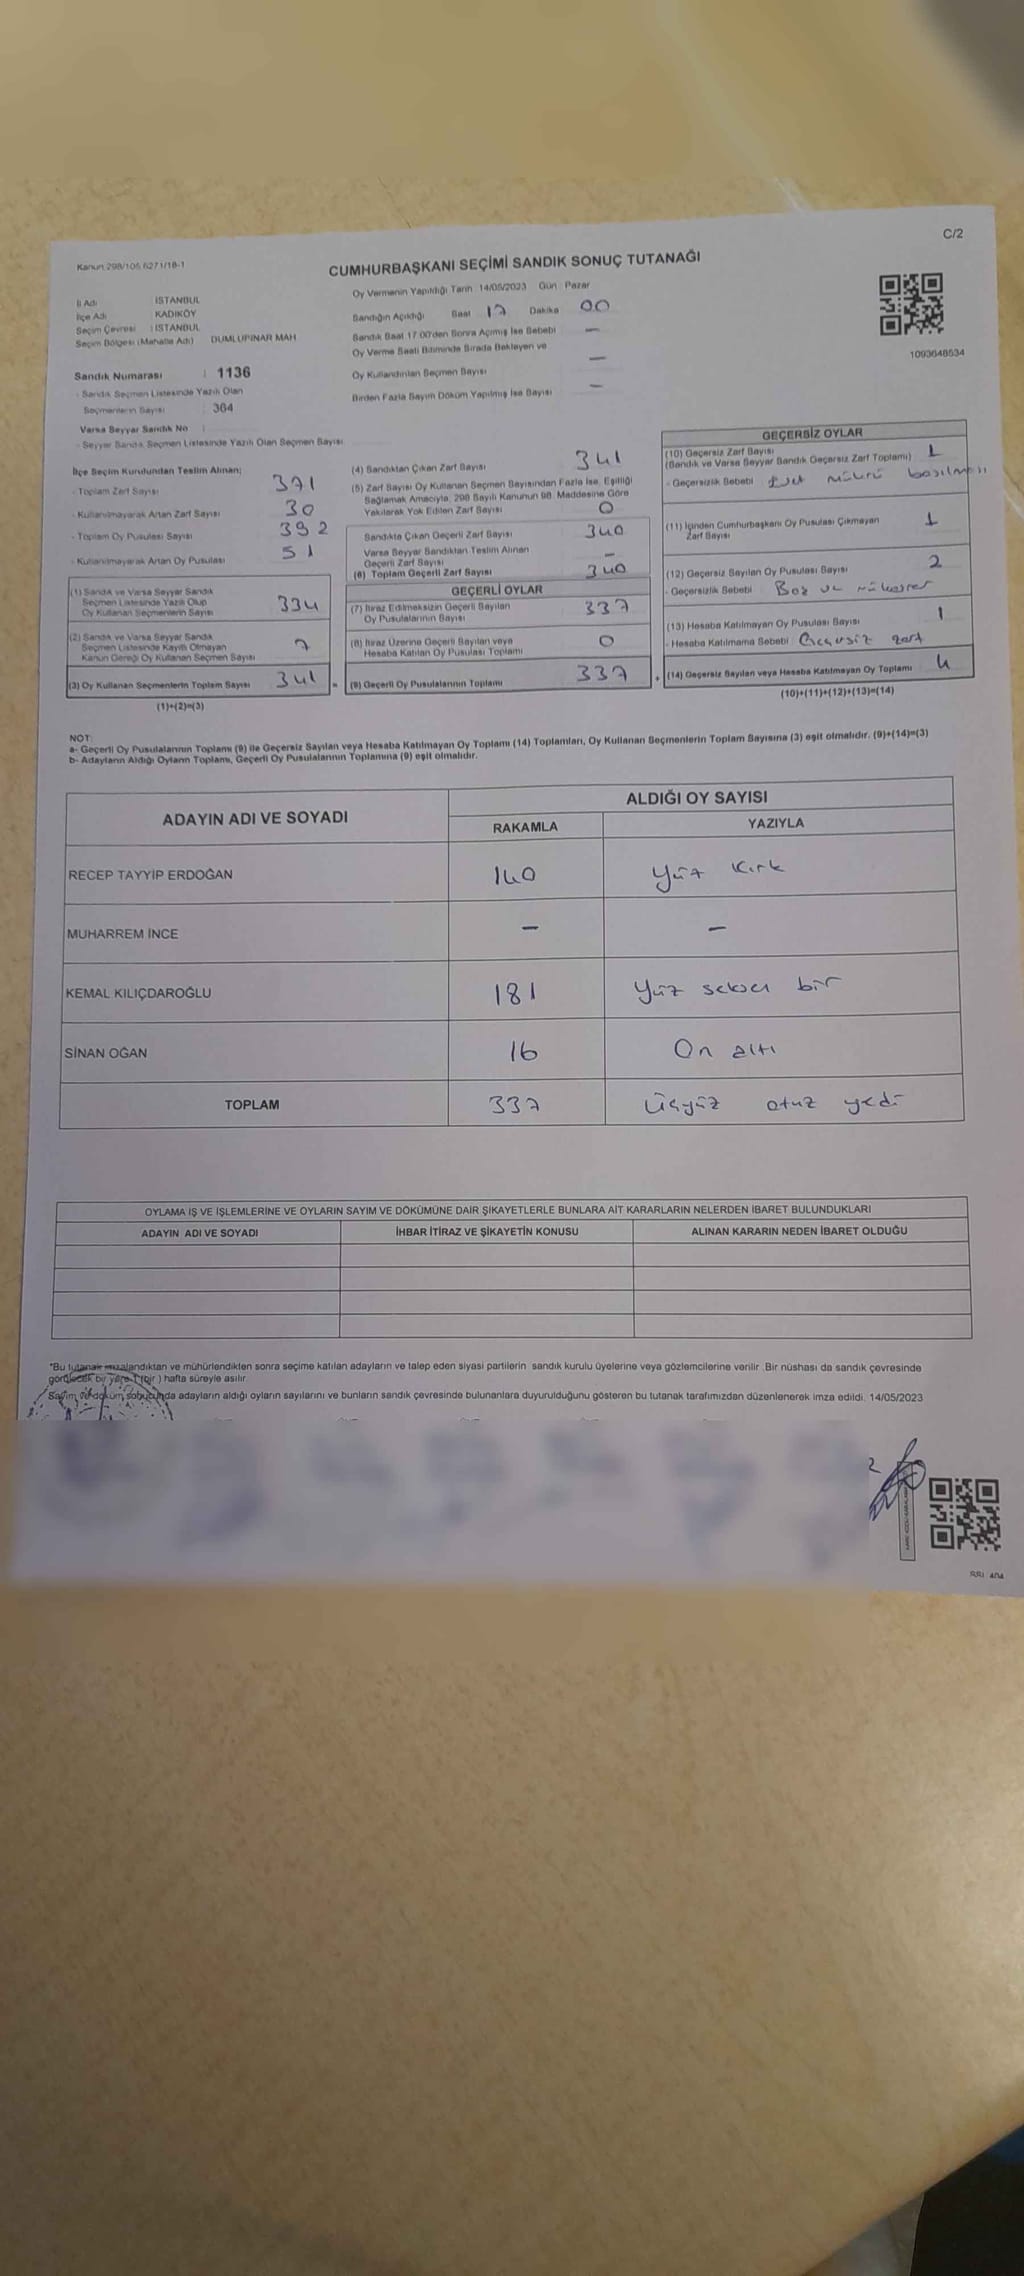 C/2
Kanun 298/105 6271/18-1
CUMHURBAŞKANI SEÇİMİ SANDIK SONUÇ TUTANAĞI
İl Adı İSTANBUL
İlçe Adı KADIKÖY
Seçim Çevresi : İSTANBUL
Seçim Bölgesi (Mahalle Adı) DUMLUPINAR MAH
Sandık Numarası : 1136
- Sandık Seçmen Listesinde Yazılı Olan
Seçmenlerin Sayısı : 364
Varsa Seyyar Sandık No :
- Seyyar Sandık Seçmen Listesinde Yazılı Olan Seçmen Sayısı
Oy Vermenin Yapıldığı Tarih 14/05/2023 Gün Pazar
Sandığın Açıldığı Saat 17 Dakika 00
Sandık Saat 17 00'den Sonra Açılmış İse Sebebi —
Oy Verme Saati Bitiminde Sırada Bekleyen ve
Oy Kullandırılan Seçmen Sayısı —
Birden Fazla Sayım Döküm Yapılmış İse Sayısı —
1093648534
İlçe Seçim Kurulundan Teslim Alınan;
- Toplam Zarf Sayısı 371
- Kullanılmayarak Artan Zarf Sayısı 30
- Toplam Oy Pusulası Sayısı 392
- Kullanılmayarak Artan Oy Pusulası 51
(1) Sandık ve Varsa Seyyar Sandık
Seçmen Listesinde Yazılı Olup
Oy Kullanan Seçmenlerin Sayısı 334
(2) Sandık ve Varsa Seyyar Sandık
Seçmen Listesinde Kayıtlı Olmayan
Kanun Gereği Oy Kullanan Seçmen Sayısı 7
(3) Oy Kullanan Seçmenlerin Toplam Sayısı 341 =
(1)+(2)=(3)
(4) Sandıktan Çıkan Zarf Sayısı 341
(5) Zarf Sayısı Oy Kullanan Seçmen Sayısından Fazla İse, Eşitliği
Sağlamak Amacıyla, 298 Sayılı Kanunun 98. Maddesine Göre
Yakılarak Yok Edilen Zarf Sayısı 0
Sandıkta Çıkan Geçerli Zarf Sayısı 340
Varsa Seyyar Sandıktan Teslim Alınan
Geçerli Zarf Sayısı —
(6) Toplam Geçerli Zarf Sayısı 340
GEÇERLİ OYLAR
(7) İtiraz Edilmeksizin Geçerli Sayılan
Oy Pusulalarının Sayısı 337
(8) İtiraz Üzerine Geçerli Sayılan veya
Hesaba Katılan Oy Pusulası Toplamı 0
(9) Geçerli Oy Pusulalarının Toplamı 337 +
GEÇERSİZ OYLAR
(10) Geçersiz Zarf Sayısı 1
(Sandık ve Varsa Seyyar Sandık Geçersiz Zarf Toplamı)
- Geçersizlik Sebebi Evet mührü basılması
(11) İçinden Cumhurbaşkanı Oy Pusulası Çıkmayan
Zarf Sayısı 1
(12) Geçersiz Sayılan Oy Pusulası Sayısı 2
- Geçersizlik Sebebi Boş ve mükerrer
(13) Hesaba Katılmayan Oy Pusulası Sayısı 1
- Hesaba Katılmama Sebebi Geçersiz zarf
(14) Geçersiz Sayılan veya Hesaba Katılmayan Oy Toplamı 4
(10)+(11)+(12)+(13)=(14)
NOT:
a- Geçerli Oy Pusulalarının Toplamı (9) ile Geçersiz Sayılan veya Hesaba Katılmayan Oy Toplamı (14) Toplamları, Oy Kullanan Seçmenlerin Toplam Sayısına (3) eşit olmalıdır. (9)+(14)=(3)
b- Adayların Aldığı Oyların Toplamı, Geçerli Oy Pusulalarının Toplamına (9) eşit olmalıdır.
ADAYIN ADI VE SOYADI ALDIĞI OY SAYISI
RAKAMLA YAZIYLA
RECEP TAYYİP ERDOĞAN 140 Yüz Kırk
MUHARREM İNCE — —
KEMAL KILIÇDAROĞLU 181 Yüz seksen bir
SİNAN OĞAN 16 On altı
TOPLAM 337 Üçyüz otuz yedi
OYLAMA İŞ VE İŞLEMLERİNE VE OYLARIN SAYIM VE DÖKÜMÜNE DAİR ŞİKAYETLERLE BUNLARA AİT KARARLARIN NELERDEN İBARET BULUNDUKLARI
ADAYIN ADI VE SOYADI İHBAR İTİRAZ VE ŞİKAYETİN KONUSU ALINAN KARARIN NEDEN İBARET OLDUĞU
*Bu tutanak imzalandıktan ve mühürlendikten sonra seçime katılan adayların ve talep eden siyasi partilerin sandık kurulu üyelerine veya gözlemcilerine verilir. Bir nüshası da sandık çevresinde
görülecek bir yere 1 (bir) hafta süreyle asılır.
Sayım ve döküm sonucunda adayların aldığı oyların sayılarını ve bunların sandık çevresinde bulunanlara duyurulduğunu gösteren bu tutanak tarafımızdan düzenlenerek imza edildi. 14/05/2023